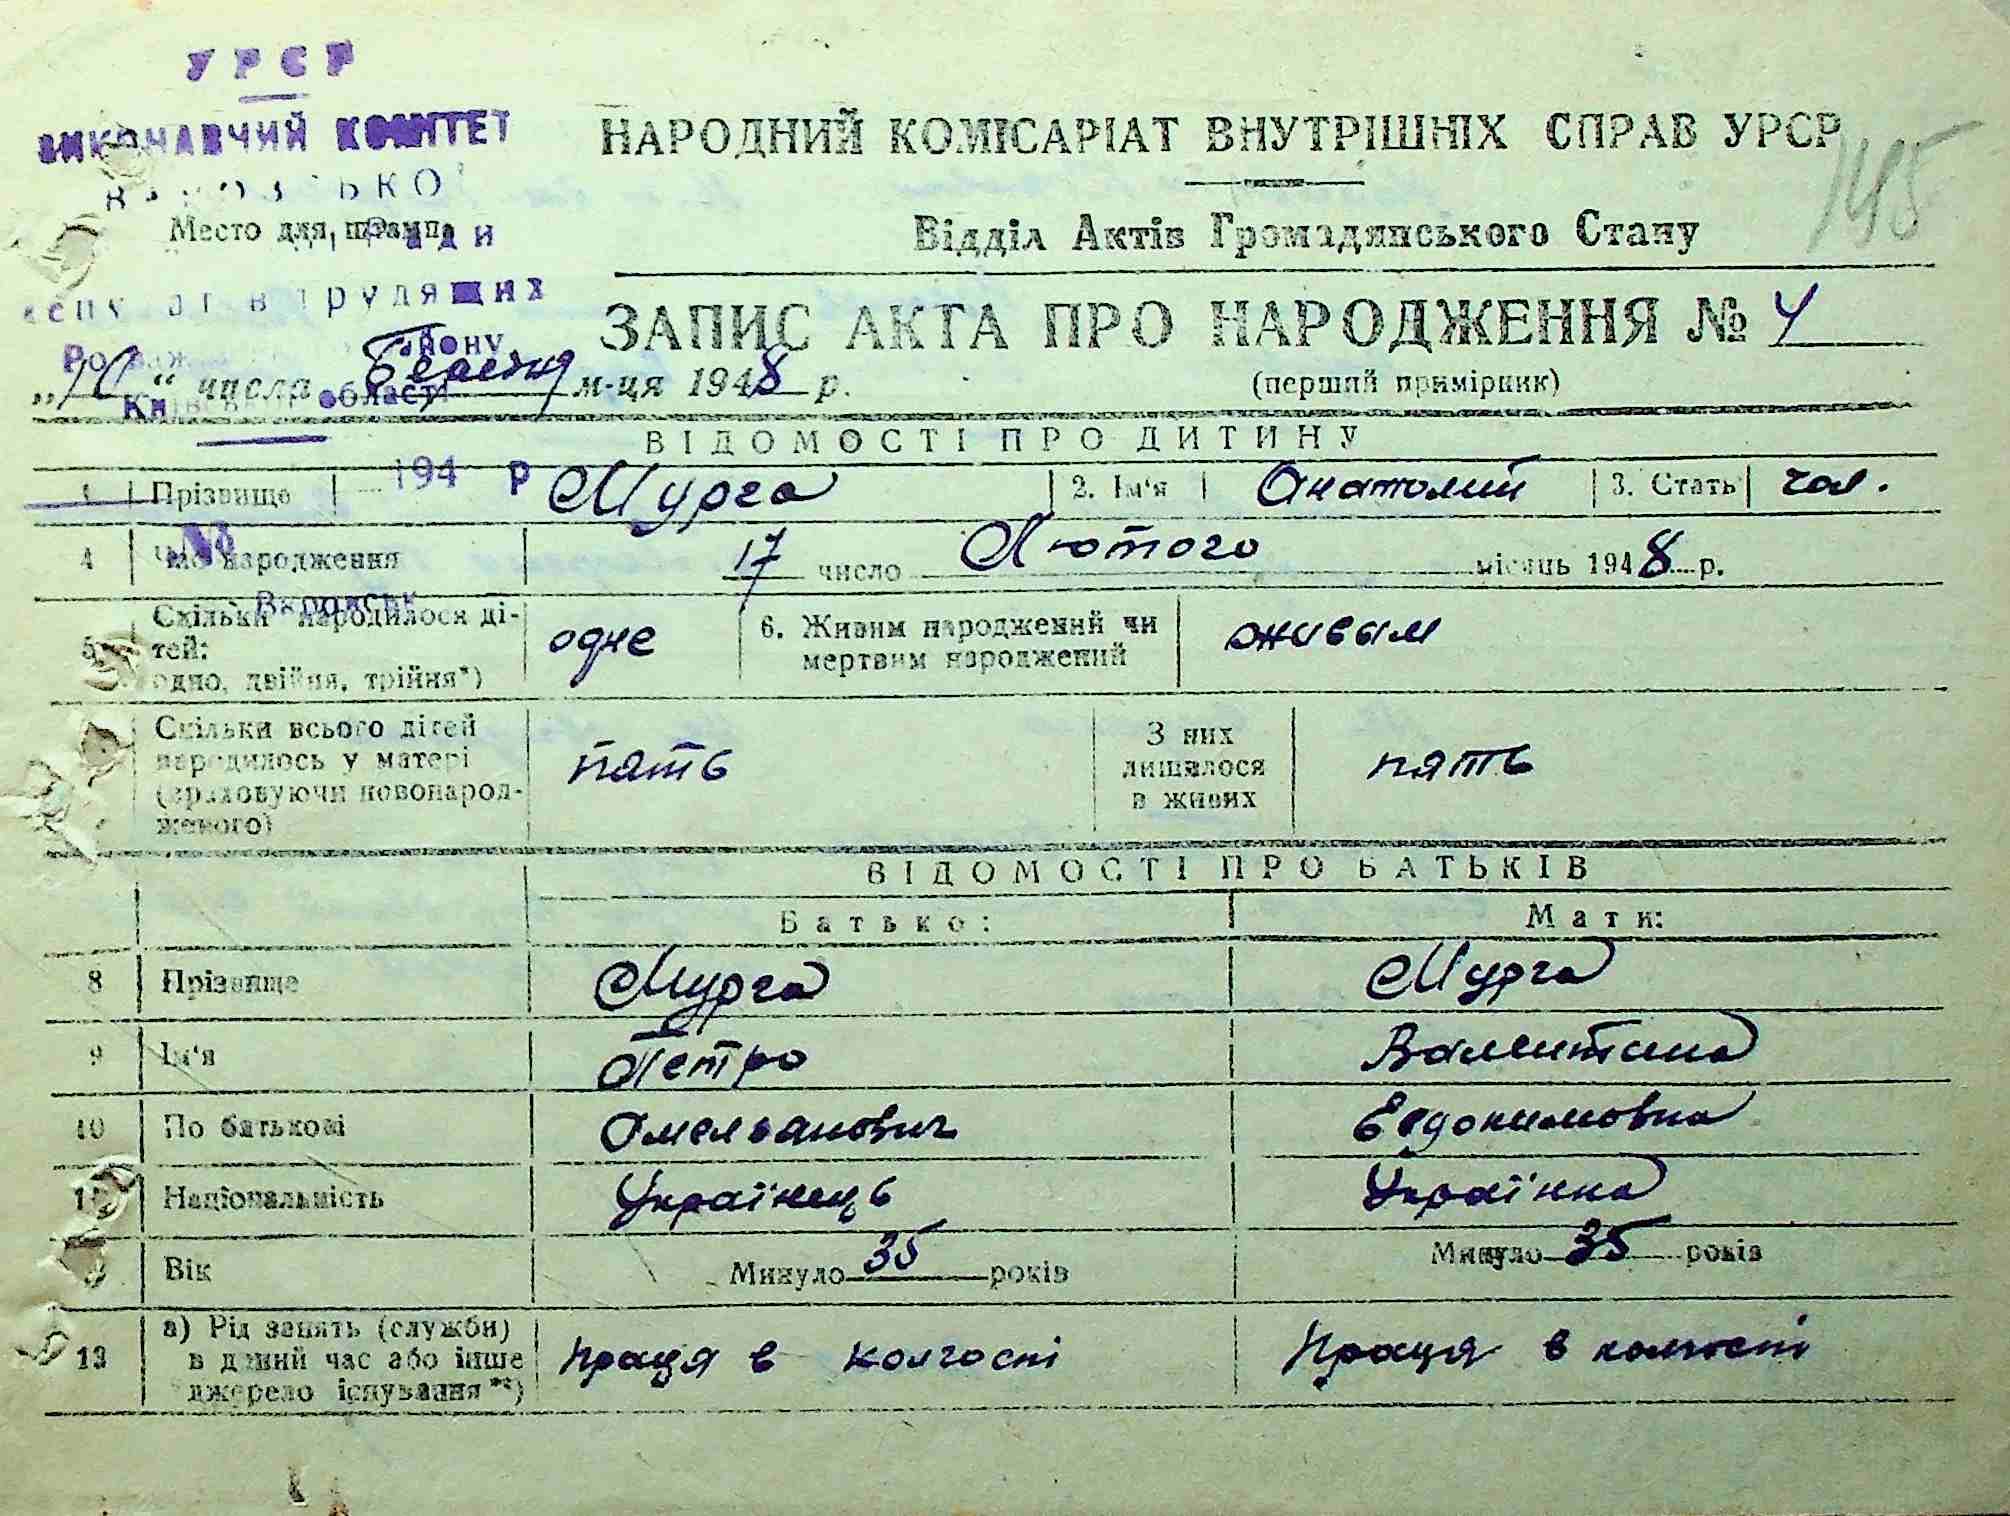 УРСР
ВИКОНАВЧИЙ КОМІТЕТ
Место для штампа
трудящих
району
області
194 Р
№
НАРОДНИЙ КОМІСАРІАТ ВНУТРІШНІХ СПРАВ УРСР
145
Відділ Актів Громадянського Стану
ЗАПИС АКТА ПРО НАРОДЖЕННЯ № 4
„10“ числа Березня м-ця 1948 р.
(перший примірник)
ВІДОМОСТІ ПРО ДИТИНУ
1 Прізвище Мурга 2. Ім'я Анатолий 3. Стать чол.
4 Час народження 17 число Лютого місяць 1948 р.
5 Скільки народилося ді-
тей:
одно, двійня, трійня*)
одне
6. Живим народжений чи
мертвим народжений
живым
Скільки всього дітей
народилось у матері
(враховуючи новонарод-
женого)
пять
З них
лишилося
в живих
пять
ВІДОМОСТІ ПРО БАТЬКІВ
Батько: Мати:
8 Прізвище Мурга Мурга
9 Ім'я Петро Валентина
10 По батькові Омельянович Евдокимовна
11 Національність Українець Українка
Вік Минуло 35 років Минуло 35 років
13 а) Рід занять (служби)
в даний час або інше
джерело існування**)
праця в колгоспі Праця в колгоспі